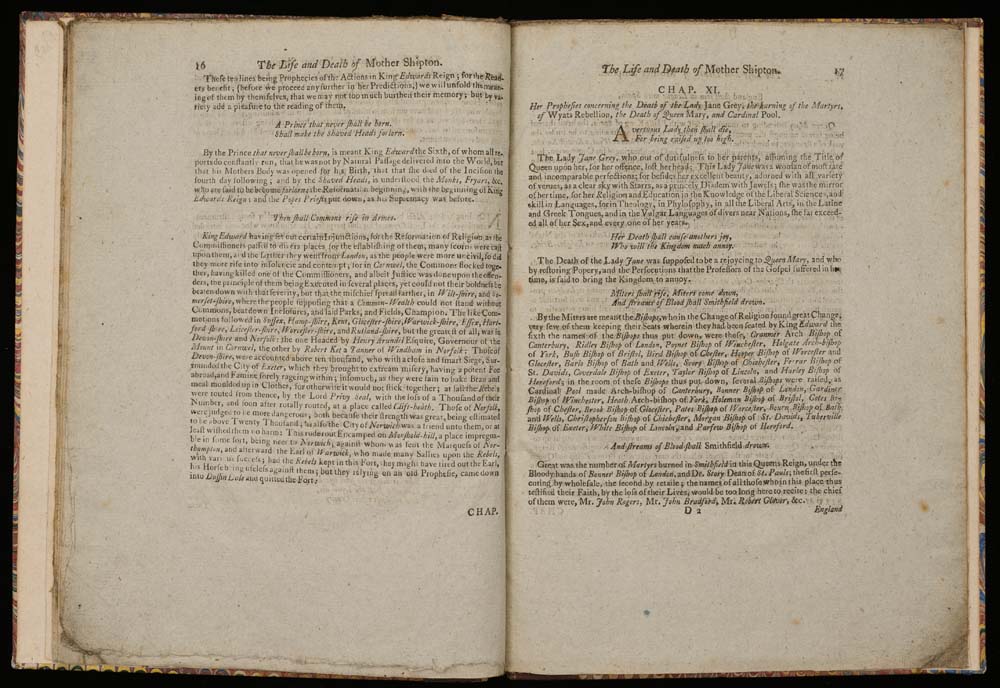 16 The Life and Death of Mother Shipton.
These two lines being Prophecies of the Actions in King Edwards Reign; for the Read-
ers benefit; (before we proceed any further in her Predictions,) we will unfold the mean-
ing of them by themselves, that we may not too much burthen their memory; but by va-
riety add a pleasure to the reading of them.
A Prince that never shall be born,
Shall make the Shaved Heads forlorn.
By the Prince that never shall be born, is meant King Edward the Sixth, of whom all re-
ports do constantly run, that he was not by Natural Passage delivered into the World, but
that his Mothers Body was opened for his Birth, that that she died of the Incision the
fourth day following; and by the Shaved Heads, is understood the Monks, Fryars, &c.
who are said to be become forlorn; the Reformation beginning, with the beginning of King
Edwards Reign: and the Popes Priests put down, as his Supremacy was before.
Then shall Commons rise in Armes.
King Edward having set out certain Injunctions, for the Reformation of Religion, as the
Commissioners passed to divers places for the establishing of them, many scorns were cast
upon them, and the farther they went from London, as the people were more uncivil, so did
they more rise into insolencie and contempt; for in Cornwel, the Commons flocked toge-
ther, having killed one of the Commissioners, and albeit Justice was done upon the offen-
ders, the principle of them being Executed in several places, yet could not their boldness be
beaten down with that severity, but that the mischief spread farther, in Wilt-shire, and So-
merset-shire, where the people supposing that a Common-Wealth could not stand without
Commons, beat down Inclosures, and laid Parks, and Fields, Champion. The like Com-
motions followed in Sussex, Hamp-shire, Kent, Glocester-shire, Warwick-shire, Essex, Hart-
ford-shire, Leicester-shire, Worcester-shire, and Rutland-shire, but the greatest of all, was in
Devon-shire and Norfolk: the one Headed by Henry Arundel Esquire, Governour of the
Mount in Cornwel, the other by Robert Ket a Tanner of Windham in Norfolk; Those of
Devon-shire, were accounted above ten thousand, who with a close and smart Siege, Sur-
rounded the City of Exeter, which they brought to extream misery, having a potent Foe
abroad, and Famine sorely rageing within; insomuch, as they were fain to bake Bran and
meal moulded up in Clothes, for otherwise it would not stick together; at last the Rebels
were routed from thence, by the Lord Privy Seal, with the loss of a Thousand of their
Number, and soon after totally routed, at a place called Clift-heath. Those of Norfolk,
were judged to be more dangerous, both because their strength was great, being estimated
to be above Twenty Thousand, as also the City of Norwich was a friend unto them, or at
least wished them no harm: This rude rout Encamped on Moushold-hill, a place impregna-
ble in some sort, being neer to Norwich; against whom was sent the Marquess of Nor-
thampton, and afterward the Earl of Warwick, who made many Sallies upon the Rebels,
with various success; had the Rebels kept in this Fort, they might have tired out the Earl,
his Horse being useless against them; but they relying on an old Prophesie, came down
into Dussin Dale and quitted the Fort:
CHAP.
The Life and Death of Mother Shipton. 17
CHAP. XI.
Her Prophesies concerning the Death of the Lady Jane Grey, the burning of the Martyrs,
of Wyats Rebellion, the Death of Queen Mary, and Cardinal Pool.
A vertuous Lady then shall die,
For being raised up too high.
The Lady Jane Grey, who out of dutifulness to her parents, assuming the Title of
Queen upon her, for her offence, lost her head: This Lady Jane was a woman of most rare
and incomparable perfections; for besides her excellent beauty, adorned with all variety
of vertues, as a clear sky with Starrs, as a princely Diadem with Jewels; she was the mirror
of her time, for her Religion and Education in the Knowledge of the Liberal Sciences, and
skill in Languages, for in Theology, in Phylosophy, in all the Liberal Arts, in the Latine
and Greek Tongues, and in the Vulgar Languages of divers near Nations, she far exceed-
ed all of her Sex, and every one of her years.
Her Death shall cause anothers joy,
Who will the Kingdom much annoy.
The Death of the Lady Jane was supposed to be a rejoycing to Queen Mary, and who
by restoring Popery, and the Persecutions that the Professors of the Gospel suffered in her
time, is said to bring the Kingdom to annoy.
Miters shall rise, Miters come down,
And streams of Blood shall Smithfield drown.
By the Miters are meant the Bishops, who in the Change of Religion found great Change;
very few of them keeping their Seats wherein they had been seated by King Edward the
sixth the names of the Bishops thus put down, were these, Cranmer Arch Bishop of
Canterbury, Ridley Bishop of London, Poynet Bishop of Winchester, Holgate Arch-bishop
of York, Bush Bishop of Bristol, Bird Bishop of Chester, Hooper Bishop of Worcester and
Glocester, Barlo Bishop of Bath and Wells, Scory Bishop of Chichester, Ferrar Bishop of
St. Davids, Coverdale Bishop of Exeter, Taylor Bishop of Lincoln, and Harley Bishop of
Hereford; in the room of these Bishops thus put down, several Bishops were raised, as
Cardinal Pool made Arch-bishop of Canterbury, Bonner Bishop of London, Gardiner
Bishop of Winchester, Heath Arch-bishop of York, Holeman Bishop of Bristol, Cotes Bi-
shop of Chester, Brook Bishop of Glocester, Pates Bishop of Worcester, Bourn Bishop of Bath
and Wells, Christopherson Bishop of Chichester, Morgan Bishop of St. Davids, Tuberville
Bishop of Exeter, White Bishop of Lincoln, and Parfew Bishop of Hereford.
And streams of Blood shall Smithfield drown.
Great was the number of Martyrs burned in Smithfield in this Queens Reign, under the
Bloody hands of Bonner Bishop of London, and Dr. Story Dean of St. Pauls; the first perse-
cuting by wholesale, the second by retaile; the names of all those who in this place thus
testified their Faith, by the loss of their Lives, would be too long here to recite: the chief
of them were, Mr. John Rogers, Mr. John Bradford, Mr. Robert Glover, &c.
D 2 England